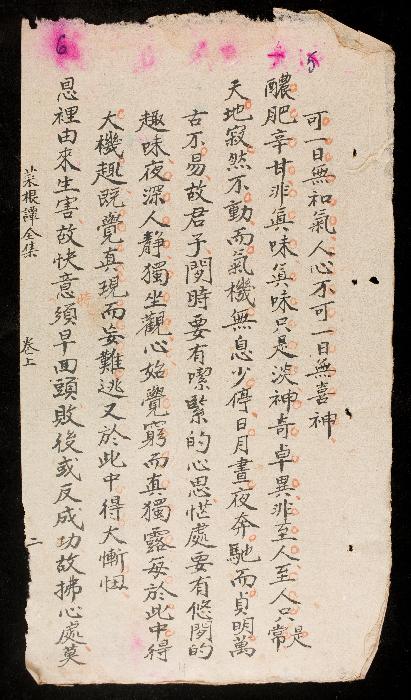 5
可一日無和氣人心不可一日無喜神
醲肥辛甘非眞味眞味只是淡神奇卓異非至人至人只是常
天地寂然不動而氣機無息少停日月晝夜奔馳而貞明萬
古不易故君子閒時要有喫緊的心思忙處要有悠閒的
趣味夜深人靜獨坐觀心始覺窮而真獨露每於此中得
大機趣既覺真現而妄難逃又於此中得大慚忸
6
恩裡由來生害故快意須早回頭敗後或反成功故拂心處莫
菜根譚全集 卷上 二